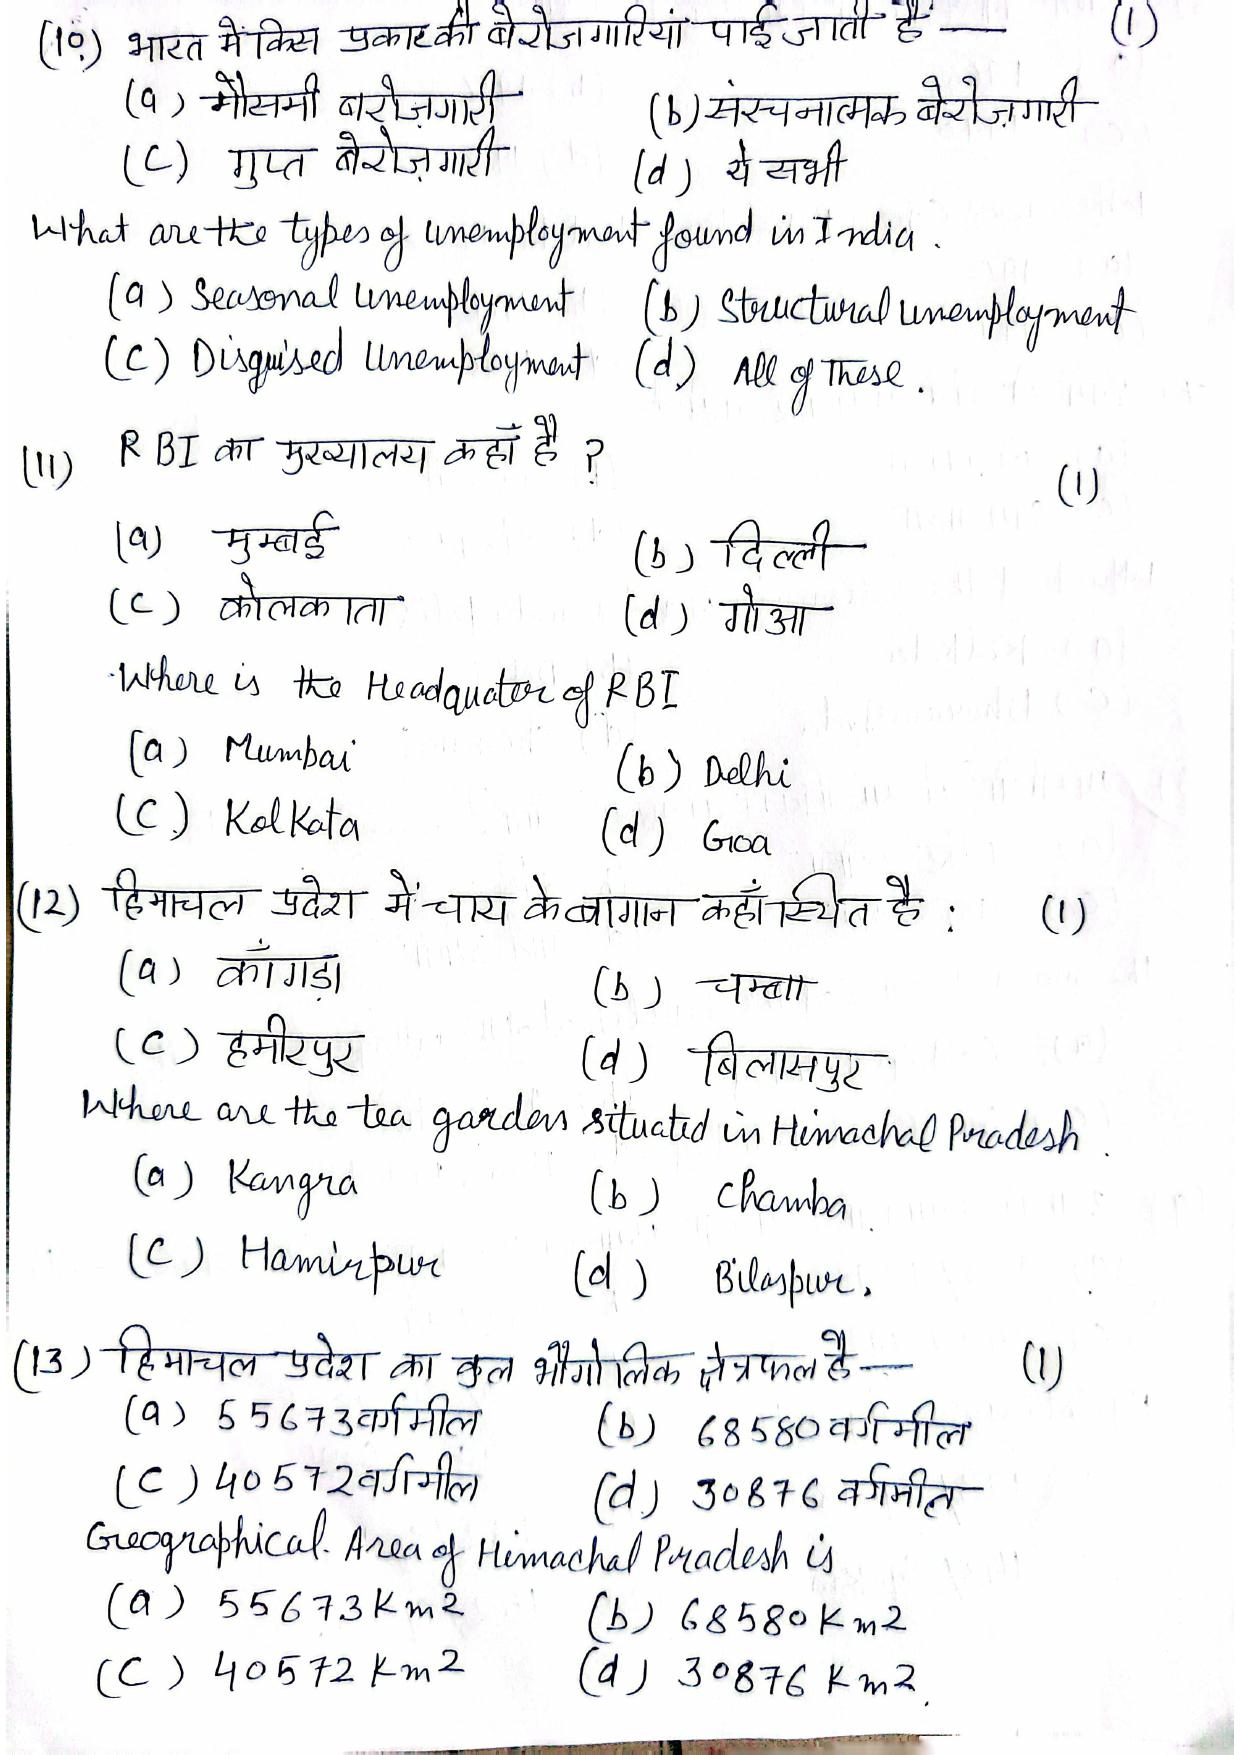 (10) भारत में किस प्रकार की बेरोजगारियां पाई जाती है — (1)
(a) मौसमी बारोज़गारी (b) संरचनात्मक बेरोज़गारी
(c) गुप्त बेरोज़गारी (d) ये सभी
What are the types of unemployment found in India.
(a) Seasonal unemployment (b) Structural unemployment
(c) Disguised Unemployment (d) All of These.
(11) RBI का मुख्यालय कहाँ है ? (1)
(a) मुम्बई (b) दिल्ली
(c) कोलकाता (d) गोआ
Where is the Headquater of RBI
(a) Mumbai (b) Delhi
(c) Kolkata (d) Goa
(12) हिमाचल प्रदेश में चाय के बागान कहाँ स्थित है : (1)
(a) काँगड़ा (b) चम्बा
(c) हमीरपुर (d) बिलासपुर
Where are the tea gardens situated in Himachal Pradesh.
(a) Kangra (b) Chamba
(c) Hamirpur (d) Bilaspur.
(13) हिमाचल प्रदेश का कुल भौगोलिक क्षेत्रफल है — (1)
(a) 55673 वर्ग मील (b) 68580 वर्ग मील
(c) 40572 वर्ग मील (d) 30876 वर्ग मील
Geographical Area of Himachal Pradesh is
(a) 55673 Km2 (b) 68580 Km2
(c) 40572 Km2 (d) 30876 Km2.